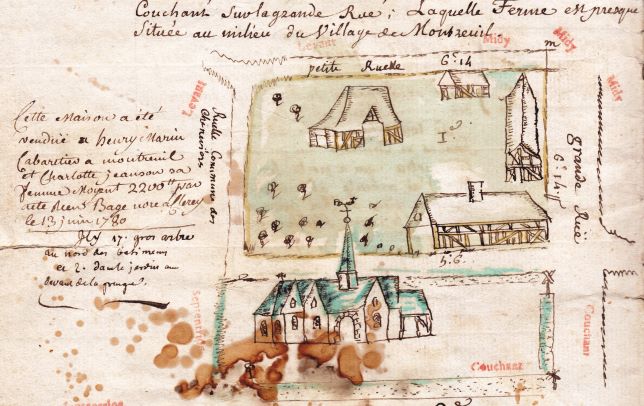 Couchant Sur la grande Rue; Laquelle Ferme est presque
Située au milieu du Village de Montreuil
Levant
Midy
Midy
Midy
petite Ruelle
6c 14
m
Levant
Ruelle Commune des
Cette Maison a été
vendüe a henry Marin
Cabaretier a montreuil
et Charlotte jeanson sa
femme Moient 2200tt par
acte Reçu Bage nore a
le 13 juin 1780
Il y 17 gros arbre
du nord des batimens
et 2 dans le jardin au
levant de la grange
I
grande Rue
6c 14
5. 6.
Septentrion
Couchant
Couchant